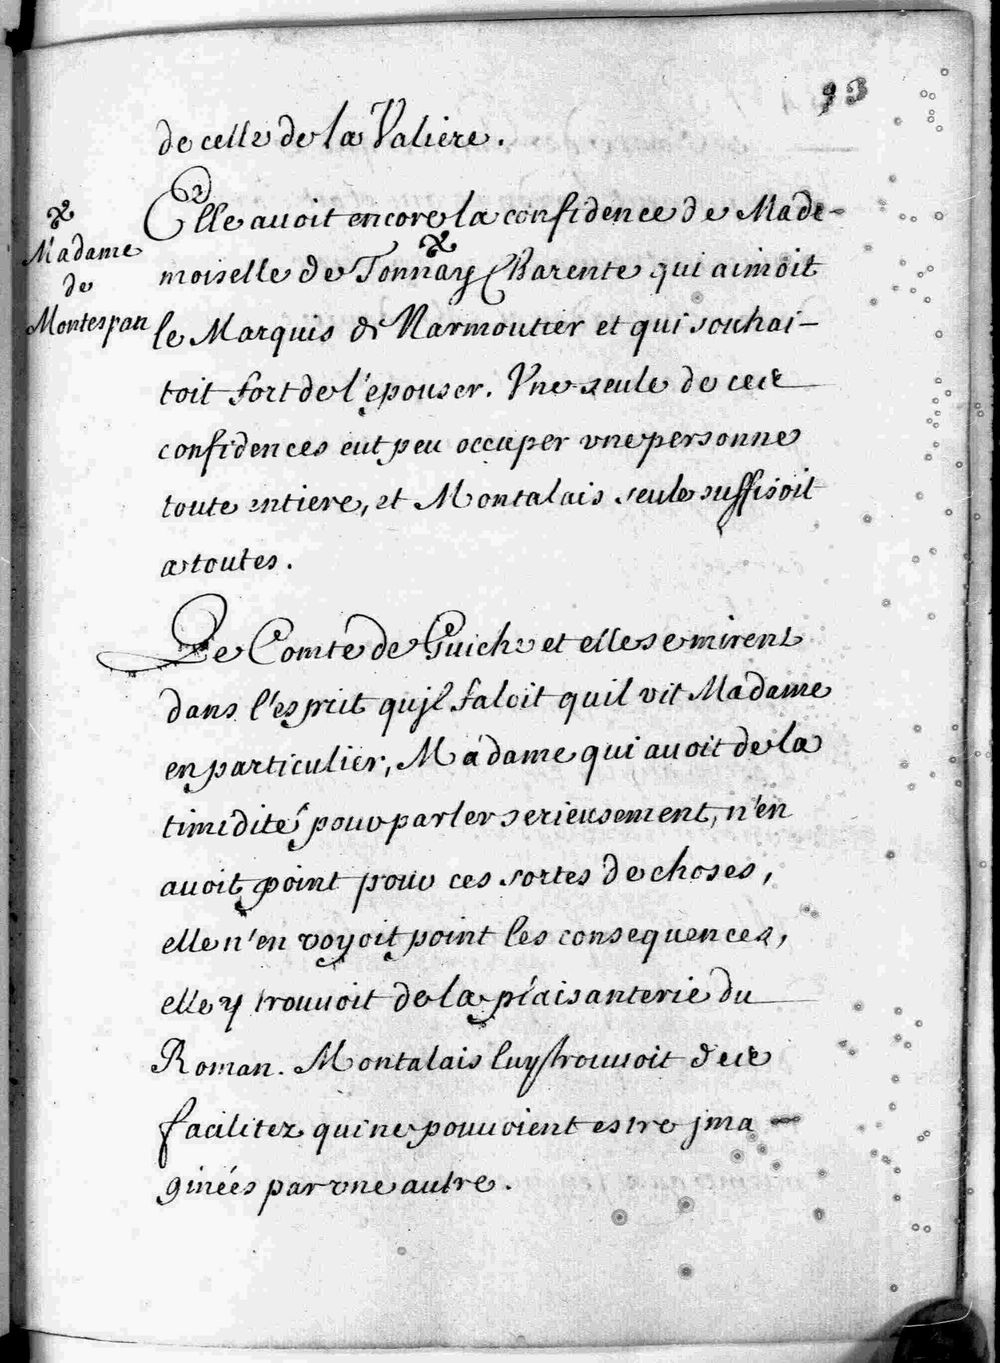 93
de celle de la Valiere.
Elle auoit encore la confidence de Made-
moiselle de Tonnay Charente qui aimoit
le Marquis de Narmoutier et qui souhai-
toit fort de l'épouser. Vne seule de ces
confidences eut peu occuper vne personne
toute entiere, et Montalais seule suffisoit
a toutes.
Madame
de
Montespan
Le Comte de Guiche et elle se mirent
dans l'esprit qu'jl faloit quil vit Madame
en particulier, Madame qui auoit de la
timidité pour parler serieusement, n'en
auoit point pour ces sortes de choses,
elle n'en voyoit point les consequences,
elle y trouuoit de la plaisanterie du
Roman. Montalais luy trouuoit des
facilitez qui ne pouuoient estre jma-
ginées par vne autre.